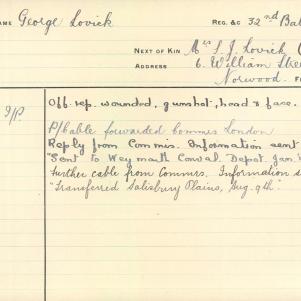 NAME George Lovick REG. &C 32nd Bat
NEXT OF KIN Mrs S. J. Lovick
ADDRESS 6. William Stre
Norwood.
Off. rep. wounded, gunshot, head & face.
P/Cable forwarded Commrs London
Reply from Commrs. Information sent
"Sent to Weymouth Conval. Depot. Jan.
Further cable from Commrs. Information s
"Transferred Salisbury Plains, Aug. 9th."